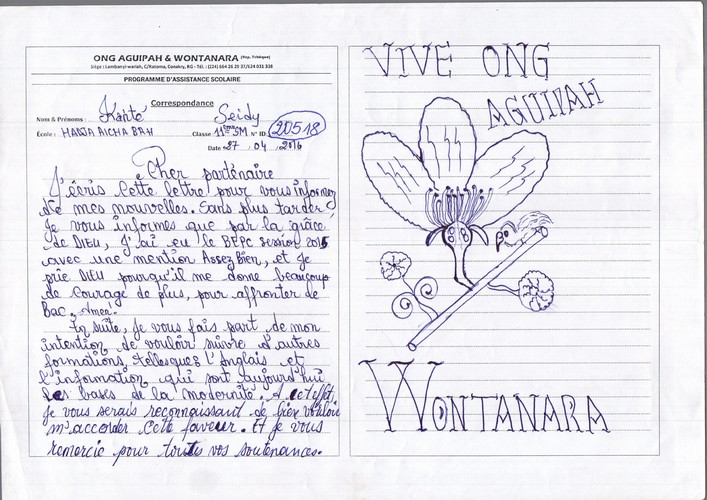 ONG AGUIPAH & WONTANARA (Rep. Tchèque)
Siège : Lambanyi-wariah, C/Ratoma, Conakry, RG - Tél. : (224) 664 26 29 37/624 031 338
PROGRAMME D'ASSISTANCE SCOLAIRE
Correspondance
Nom & Prénoms : Kanté Seidy
École : HADJA AICHA BAH Classe 11ème SM N° ID: 20518
Date 27 / 04 / 2016
Cher partenaire
J'écris cette lettre pour vous informer
de mes nouvelles. Sans plus tarder,
Je vous informes que par la grâce
de DIEU, J'ai eu le BEPC session 2015
avec une mention Assez Bien, et Je
prie DIEU pourqu'il me donne beaucoup
de courage de plus, pour affronter de
Bac. Amen.
En suite, Je vous fais part de mon
intention de vouloir suivre d'autres
formations, tellesques l'Anglais et
l'information qui sont aujourd'hui
les bases de la modernité. A cet effet,
Je vous serais reconnaissant de bien vouloir
m'accorder cette faveur. Et Je vous
remercie pour toutes vos soutenances.
VIVE ONG
AGUIPAH
WONTANARA